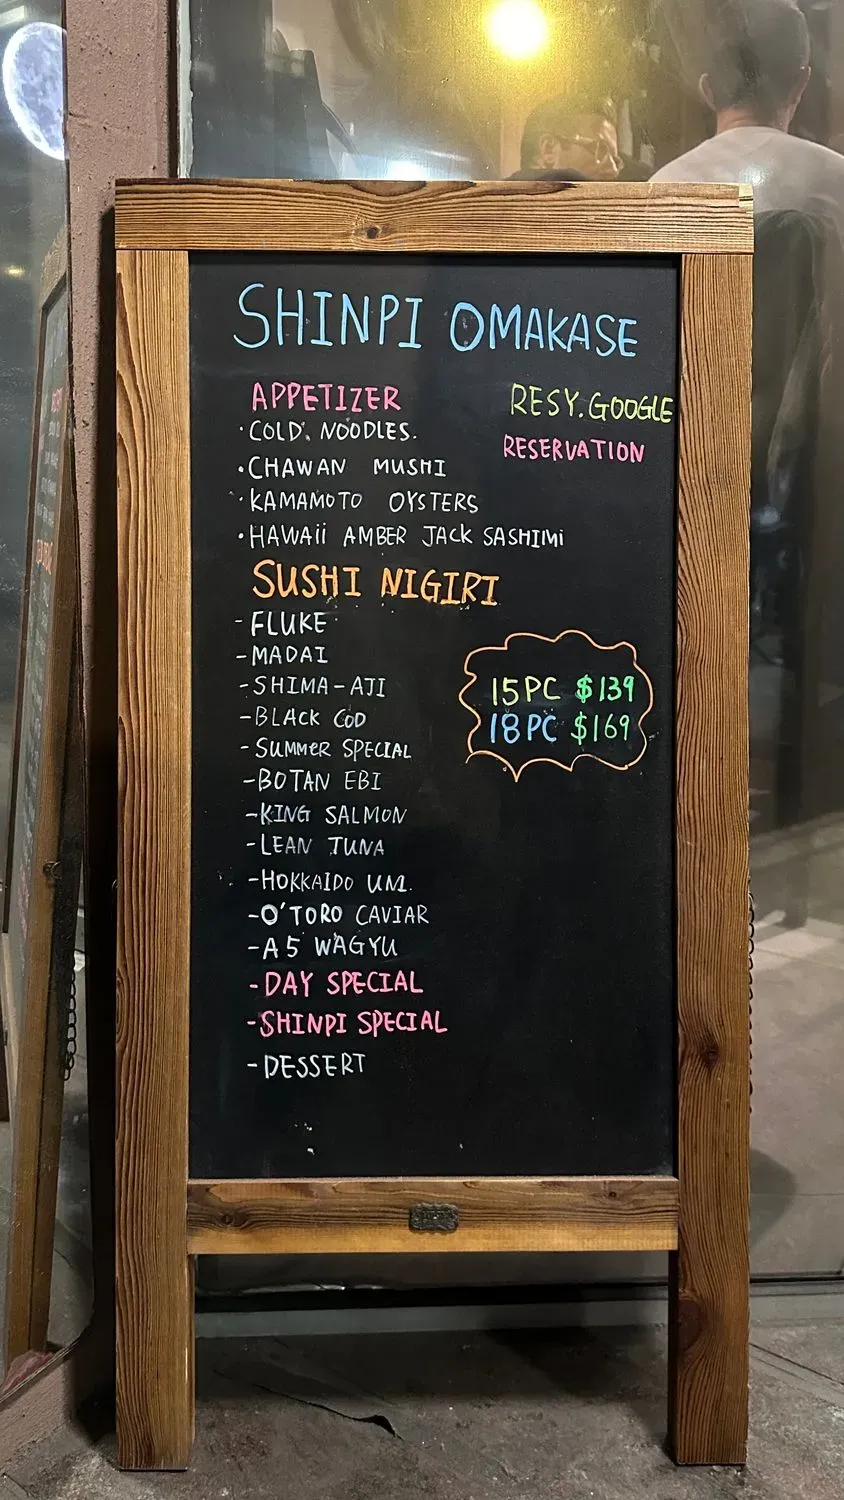 SHINPI OMAKASE
APPETIZER
· COLD. NOODLES.
· CHAWAN MUSHI
· KAMAMOTO OYSTERS
· HAWAii AMBER JACK SASHIMi
RESY.GOOGLE
RESERVATION
SUSHI NIGIRI
- FLUKE
- MADAI
- SHIMA-AJI
- BLACK COD
- SUMMER SPECIAL
- BOTAN EBI
- KING SALMON
- LEAN TUNA
- HOKKAIDO UNI.
- O'TORO CAVIAR
- A5 WAGYU
- DAY SPECIAL
- SHINPI SPECIAL
- DESSERT
15PC $139
18PC $169